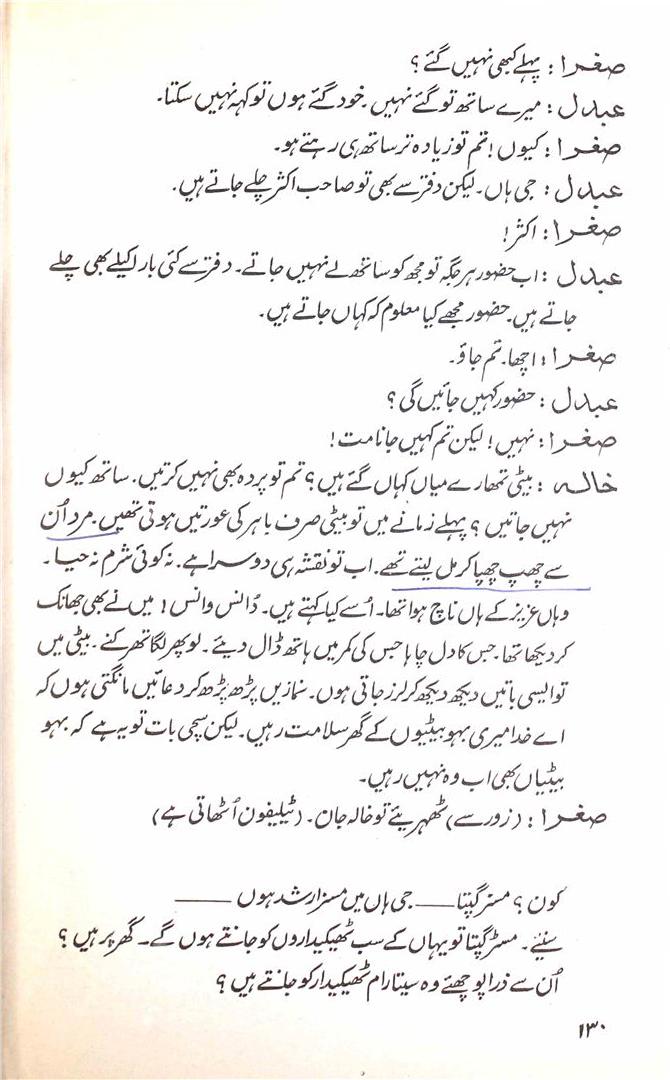 صغرا : پہلے کبھی نہیں گئے ؟
عبدل : میرے ساتھ تو گئے نہیں ۔ خود گئے ہوں تو کہہ نہیں سکتا۔
صغرا : کیوں ! تم تو زیادہ تر ساتھ ہی رہتے ہو۔
عبدل : جی ہاں ۔ لیکن دفتر سے بھی تو صاحب اکثر چلے جاتے ہیں ۔
صغرا : اکثر !
عبدل : اب حضور ہر جگہ تو مجھ کو ساتھ لے نہیں جاتے ۔ دفتر سے کئی بار اکیلے بھی چلے
جاتے ہیں ۔ حضور مجھے کیا معلوم کہ کہاں جاتے ہیں ۔
صغرا : اچھا ۔ تم جاؤ ۔
عبدل : حضور کہیں جائیں گی ؟
صغرا : نہیں ! لیکن تم کہیں جانا مت !
خالہ : بیٹی تمھارے میاں کہاں گئے ہیں ؟ تم تو پردہ بھی نہیں کرتیں ۔ ساتھ کیوں
نہیں جاتیں ؟ پہلے زمانے میں تو بیٹی صرف باہر کی عورتیں ہوتی تھیں ۔ مرد اُن
سے چھپ چھپا کر مل لیتے تھے ۔ اب تو نقشہ ہی دوسرا ہے ۔ نہ کوئی شرم نہ حیا ۔
وہاں عزیز کے ہاں ناچ ہوا تھا ۔ اُسے کیا کہتے ہیں ۔ ڈانس وانس ! میں نے بھی جھانک
کر دیکھا تھا ۔ جس کا دل چاہا جس کی کمر میں ہاتھ ڈال دیئے ۔ لو پھر لگا تھرکنے ۔ بیٹی میں
تو ایسی باتیں دیکھ دیکھ کر لرز جاتی ہوں ۔ نمازیں پڑھ پڑھ کر دعائیں مانگتی ہوں کہ
اے خدا میری بہو بیٹیوں کے گھر سلامت رہیں ۔ لیکن سچی بات تو یہ ہے کہ بہو
بیٹیاں بھی اب وہ نہیں رہیں ۔
صغرا : (زور سے) ٹھہریئے تو خالہ جان ۔ (ٹیلیفون اُٹھاتی ہے)
کون ؟ مسز گپتا —— جی ہاں میں مسز ارشد ہوں ——
سنیئے ۔ مسٹر گپتا تو یہاں کے سب ٹھیکیداروں کو جانتے ہوں گے ۔ گھر پر ہیں ؟
اُن سے ذرا پوچھئے وہ سیتا رام ٹھیکیدار کو جانتے ہیں ؟
۱۳۰